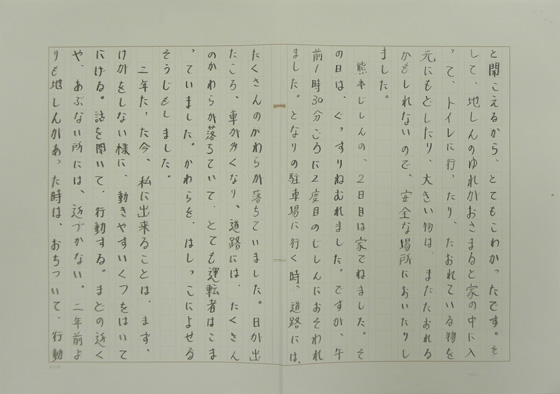 と聞こえるから、とてもこわかったです。そ
して、地しんのゆれがおさまると家の中に入
って、トイレに行ったり、たおれている物を
元にもどしたり、大きい物は、またたおれる
かもしれないので、安全な場所においたりし
ました。
熊本じしんの、2日目は家でねました。そ
の日は、ぐっすりねむれました。ですが、午
前1時30分ころに2度目のじしんにおそわれ
ました。となりの駐車場に行く時、道路には、
たくさんのかわらが落ちていました。日が出
たころ、車が多くなり、道路には、たくさん
のかわらが落ちていて、とても運転者はこま
っていました。かわらを、はしっこによせる
そうじもしました。
二年たった今、私に出来ることは、まず、
けがをしない様に、動きやすいくつをはいて
にげる。話を聞いて、行動する。まどの近く
や、あぶない所には、近づかない。二年前よ
りも地しんがあった時は、おちついて、行動